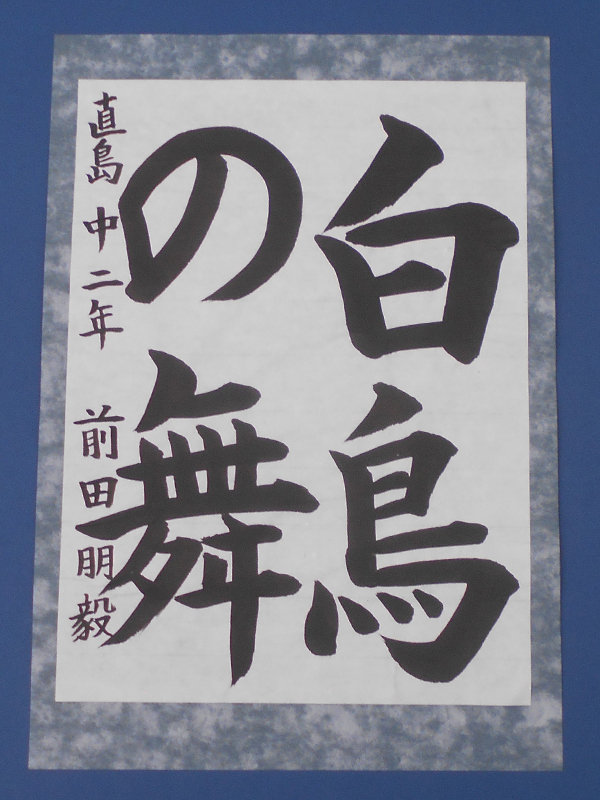 白鳥
の舞
直島中二年 前田朋毅